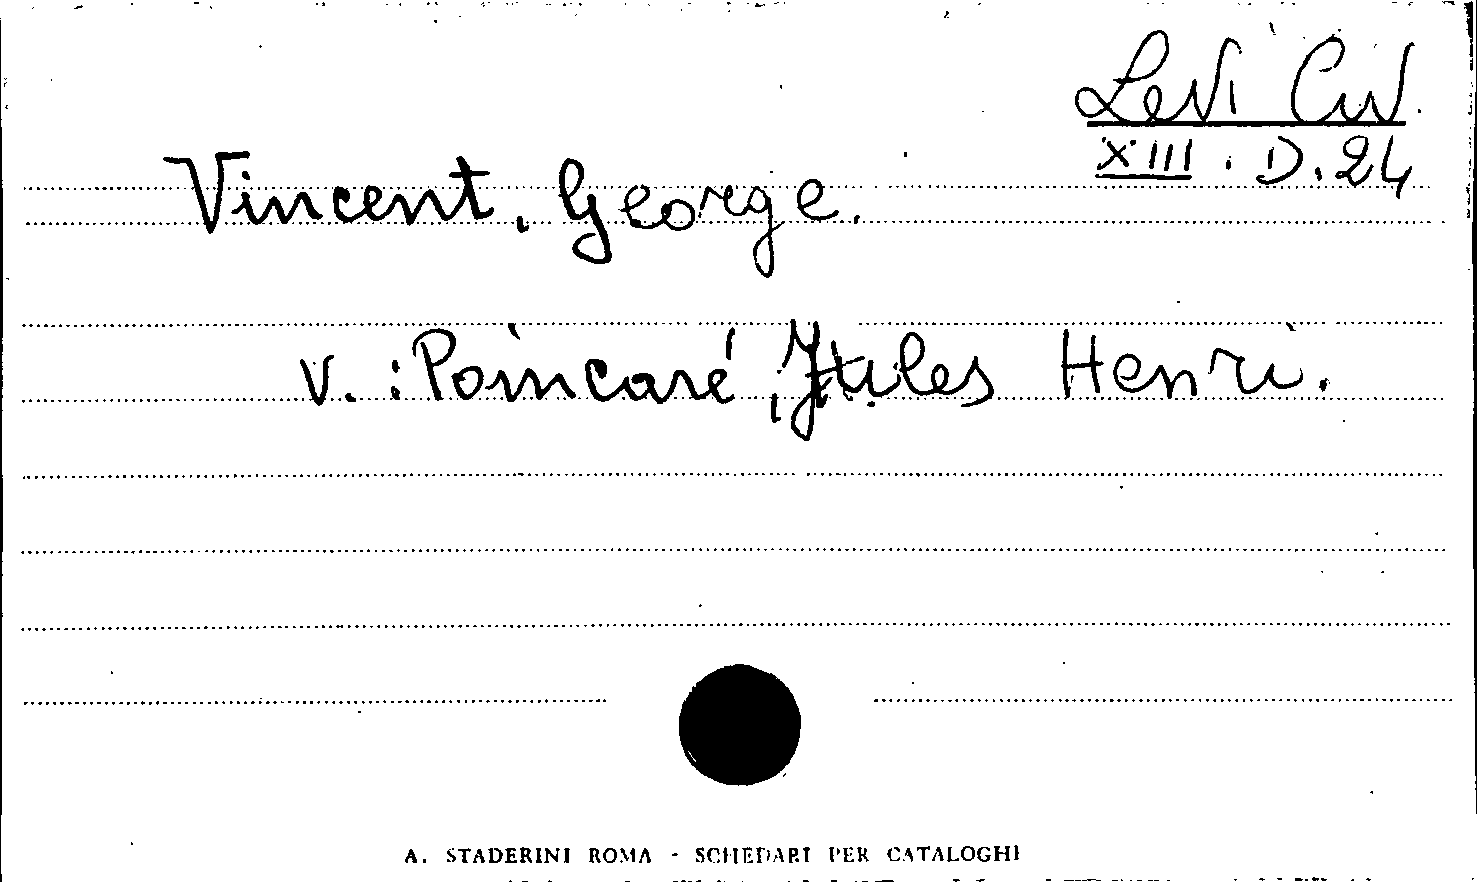 Levi Civ.
XIII. D. 24
Vincent, George.
v. : Poincaré, Jules Henri.
A. STADERINI ROMA - SCHEDARI PER CATALOGHI